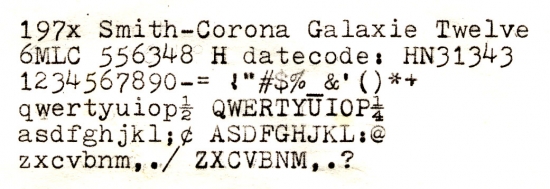 197x Smith-Corona Galaxie Twelve
6MLC 556348 H datecode: HN31343
1234567890-= !"#$%_&'()*+
qwertyuiop½ QWERTYUIOP¼
asdfghjkl;¢ ASDFGHJKL:@
zxcvbnm,./ ZXCVBNM,.?